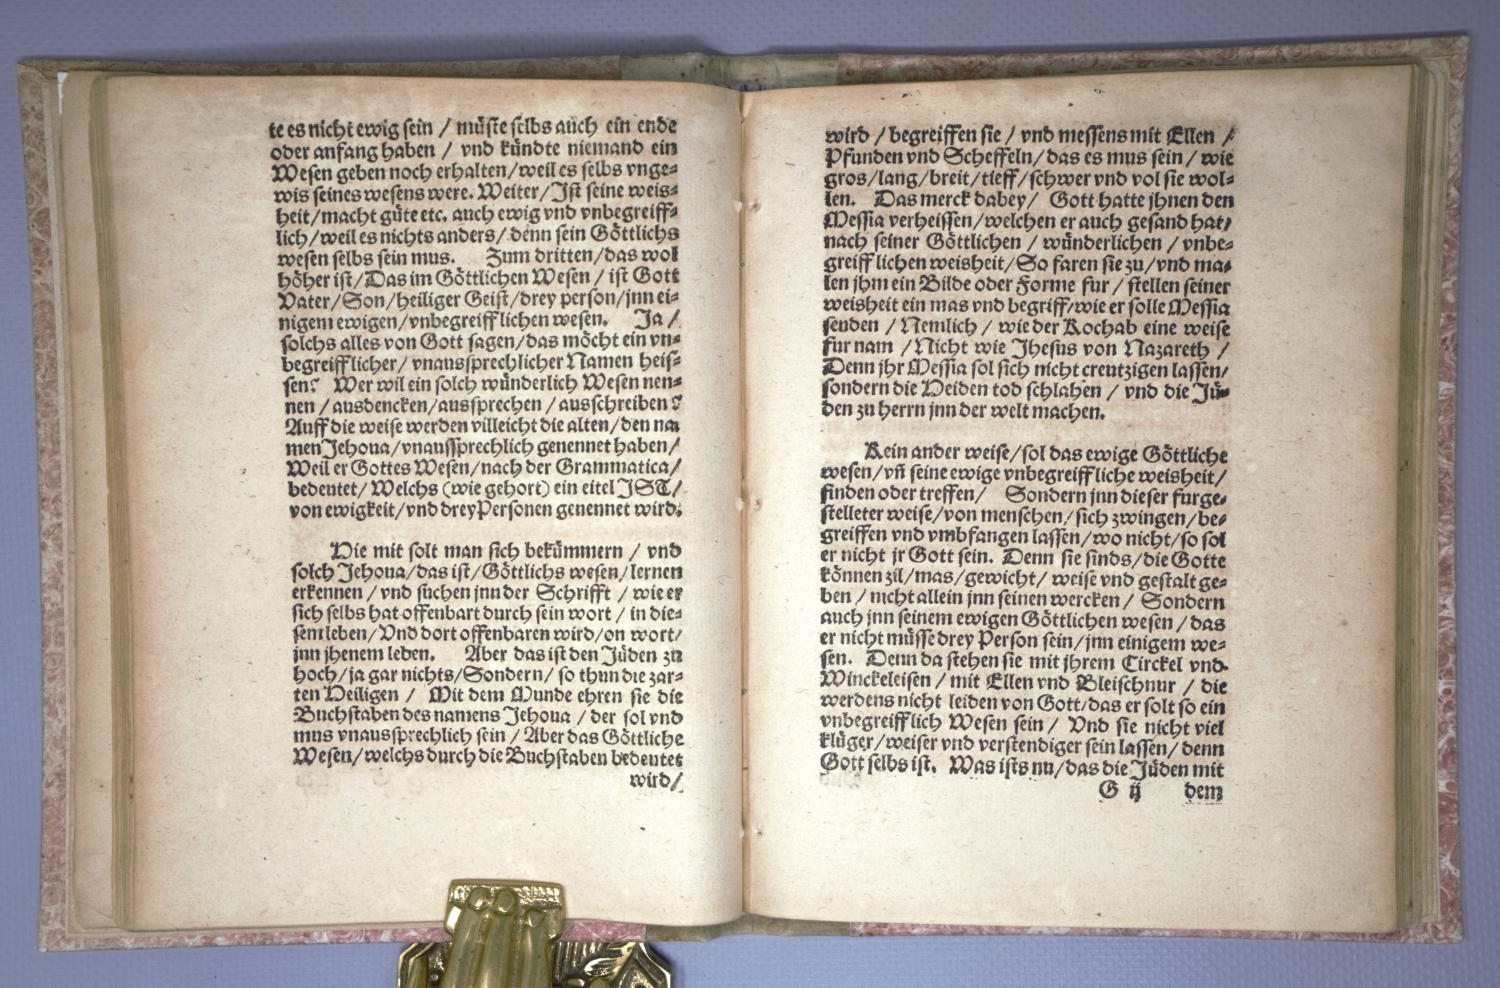 te es nicht ewig sein / müste selbs auch ein ende
oder anfang haben / vnd kündte niemand ein
Wesen geben noch erhalten/weil es selbs vnge⸗
wis seines wesens were. Weiter/Ist seine weis⸗
heit/macht güte etc. auch ewig vnd vnbegreiff⸗
lich/weil es nichts anders/denn sein Göttlichs
wesen selbs sein mus. Zum dritten/das wol
höher ist/Das im Göttlichen Wesen / ist Gott
Vater/Son/heiliger Geist/drey person/jnn ei⸗
nigem ewigen/vnbegreifflichen wesen. Ja /
solchs alles von Gott sagen/das möcht ein vn⸗
begreifflicher/ vnaussprechlicher Namen heis⸗
sen? Wer wil ein solch wünderlich Wesen nen⸗
nen / ausdencken/aussprechen / ausschreiben?
Auff die weise werden villeicht die alten/den na
men Jehoua/vnaussprechlich genennet haben/
Weil er Gottes Wesen/nach der Grammatica/
bedeutet/ Welchs (wie gehort) ein eitel IST/
von ewigkeit/vnd drey Personen genennet wird.
Hie mit solt man sich bekümmern / vnd
solch Jehoua/das ist/Göttlichs wesen/lernen
erkennen / vnd suchen jnn der Schrifft / wie er
sich selbs hat offenbart durch sein wort / in die⸗
sem leben/Vnd dort offenbaren wird/on wort/
jnn jhenem leben. Aber das ist den Jüden zu
hoch/ja gar nichts/Sondern/ so thun die zar⸗
ten Heiligen / Mit dem Munde ehren sie die
Buchstaben des namens Jehoua / der sol vnd
mus vnaussprechlich sein / Aber das Göttliche
Wesen/welchs durch die Buchstaben bedeutet
wird/
wird / begreiffen sie / vnd messens mit Ellen /
Pfunden vnd Scheffeln/das es mus sein / wie
gros/lang/breit/tieff/schwer vnd vol sie wol⸗
len. Das merck dabey/ Gott hatte jhnen den
Messia verheissen/welchen er auch gesand hat/
nach seiner Göttlichen / wünderlichen / vnbe⸗
greifflichen weisheit/So faren sie zu/vnd ma⸗
len jhm ein Bilde oder Forme fur / stellen seiner
weisheit ein mas vnd begriff/wie er solle Messia
senden / Nemlich / wie der Kochab eine weise
fur nam / Nicht wie Jhesus von Nazareth /
Denn jhr Messia sol sich nicht creutzigen lassen/
sondern die Heiden tod schlahen / vnd die Jü⸗
den zu herrn jnn der welt machen.
Kein ander weise/sol das ewige Göttliche
wesen/vñ seine ewige vnbegreiffliche weisheit/
finden oder treffen/ Sondern jnn dieser furge⸗
stelleter weise/von menschen/sich zwingen/be⸗
greiffen vnd vmbfangen lassen/wo nicht/so sol
er nicht jr Gott sein. Denn sie sinds/die Gotte
können zil/mas/gewicht/ weise vnd gestalt ge⸗
ben / nicht allein jnn seinen wercken / Sondern
auch jnn seinem ewigen Göttlichen wesen / das
er nicht müsse drey Person sein/jnn einigem we⸗
sen. Denn da stehen sie mit jhrem Circkel vnd
Winckeleisen / mit Ellen vnd Bleischnur / die
werdens nicht leiden von Gott/das er solt so ein
vnbegreifflich Wesen sein / Vnd sie nicht viel
klüger/weiser vnd verstendiger sein lassen/denn
Gott selbs ist. Was ists nu/das die Jüden mit
G ij dem